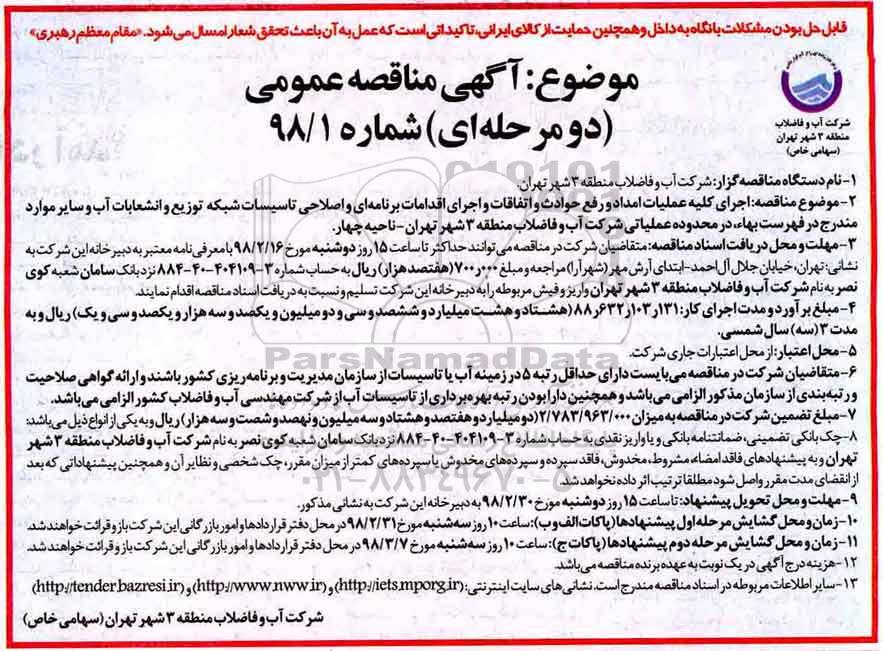 قابل حل بودن مشکلات با نگاه به داخل و همچنین حمایت از کالای ایرانی، تاکیداتی است که عمل به آن باعث تحقق شعار امسال می شود. «مقام معظم رهبری»
موضوع: آگهی مناقصه عمومی
(دو مرحله‌ای) شماره ۹۸/۱
شرکت آب و فاضلاب
منطقه ۳ شهر تهران
(سهامی خاص)
۱- نام دستگاه مناقصه گزار: شرکت آب و فاضلاب منطقه ۳ شهر تهران.
۲- موضوع مناقصه: اجرای کلیه عملیات امداد و رفع حوادث و اتفاقات و اجرای اقدامات برنامه‌ای و اصلاحی تاسیسات شبکه توزیع و انشعابات آب و سایر موارد
مندرج در فهرست بهاء، در محدوده عملیاتی شرکت آب و فاضلاب منطقه ۳ شهر تهران - ناحیه چهار.
۳- مهلت و محل دریافت اسناد مناقصه: متقاضیان شرکت در مناقصه می توانند حداکثر تا ساعت ۱۵ روز دوشنبه مورخ ۹۸/۲/۱۶ با معرفی نامه معتبر به دبیرخانه این شرکت به
نشانی: تهران، خیابان جلال آل احمد- ابتدای آرش مهر (شهرآرا) مراجعه و مبلغ ۷۰۰٫۰۰۰ (هفتصد هزار) ریال به حساب شماره ۳-۴۰۴۱۰۹-۴۰-۸۸۴ نزد بانک سامان شعبه کوی
نصر به نام شرکت آب و فاضلاب منطقه ۳ شهر تهران واریز و فیش مربوطه را به دبیرخانه این شرکت تسلیم و نسبت به دریافت اسناد مناقصه اقدام نمایند.
۴- مبلغ برآورد و مدت اجرای کار: ۸۸٫۶۳۲٫۱۰۳٫۱۳۱ (هشتاد و هشت میلیارد و ششصد و سی و دو میلیون و یکصد و سه هزار و یکصد و سی و یک) ریال و به
مدت ۳ (سه) سال شمسی.
۵- محل اعتبار: از محل اعتبارات جاری شرکت.
۶- متقاضیان شرکت در مناقصه می بایست دارای حداقل رتبه ۵ در زمینه آب یا تاسیسات از سازمان مدیریت و برنامه ریزی کشور باشند و ارائه گواهی صلاحیت
و رتبه بندی از سازمان مذکور الزامی می باشد و همچنین دارا بودن رتبه بهره برداری از تاسیسات آب از شرکت مهندسی آب و فاضلاب کشور الزامی می باشد.
۷- مبلغ تضمین شرکت در مناقصه به میزان ۲/۷۸۳/۹۶۳/۰۰۰ (دو میلیارد و هفتصد و هشتاد و سه میلیون و نهصد و شصت و سه هزار) ریال و به یکی از انواع ذیل می باشد:
۸- چک بانکی تضمینی، ضمانتنامه بانکی و یا واریز نقدی به حساب شماره ۳-۴۰۴۱۰۹-۴۰-۸۸۴ نزد بانک سامان شعبه کوی نصر به نام شرکت آب و فاضلاب منطقه ۳ شهر
تهران و به پیشنهادهای فاقد امضاء، مشروط، مخدوش، فاقد سپرده و سپرده های مخدوش یا سپرده های کمتر از میزان مقرر، چک شخصی و نظایر آن و همچنین پیشنهاداتی که بعد
از انقضای مدت مقرر واصل شود مطلقا ترتیب اثر داده نخواهد شد.
۹- مهلت و محل تحویل پیشنهاد: تا ساعت ۱۵ روز دوشنبه مورخ ۹۸/۲/۳۰ به دبیرخانه این شرکت به نشانی مذکور.
۱۰- زمان و محل گشایش مرحله اول پیشنهادها (پاکات الف و ب): ساعت ۱۰ روز سه شنبه مورخ ۹۸/۲/۳۱ در محل دفتر قراردادها و امور بازرگانی این شرکت باز و قرائت خواهند شد.
۱۱- زمان و محل گشایش مرحله دوم پیشنهادها (پاکات ج): ساعت ۱۰ روز سه شنبه مورخ ۹۸/۳/۷ در محل دفتر قراردادها و امور بازرگانی این شرکت باز و قرائت خواهند شد.
۱۲- هزینه درج آگهی در یک نوبت به عهده برنده مناقصه می باشد.
۱۳- سایر اطلاعات مربوطه در اسناد مناقصه مندرج است. نشانی های سایت اینترنتی: (http://iets.mporg.ir) و (http://www.nww.ir) و (http://tender.bazresi.ir)
شرکت آب و فاضلاب منطقه ۳ شهر تهران (سهامی خاص)
ParsNamadData
۰۲۱-۸۸۳۴۹۶۷۰-۵